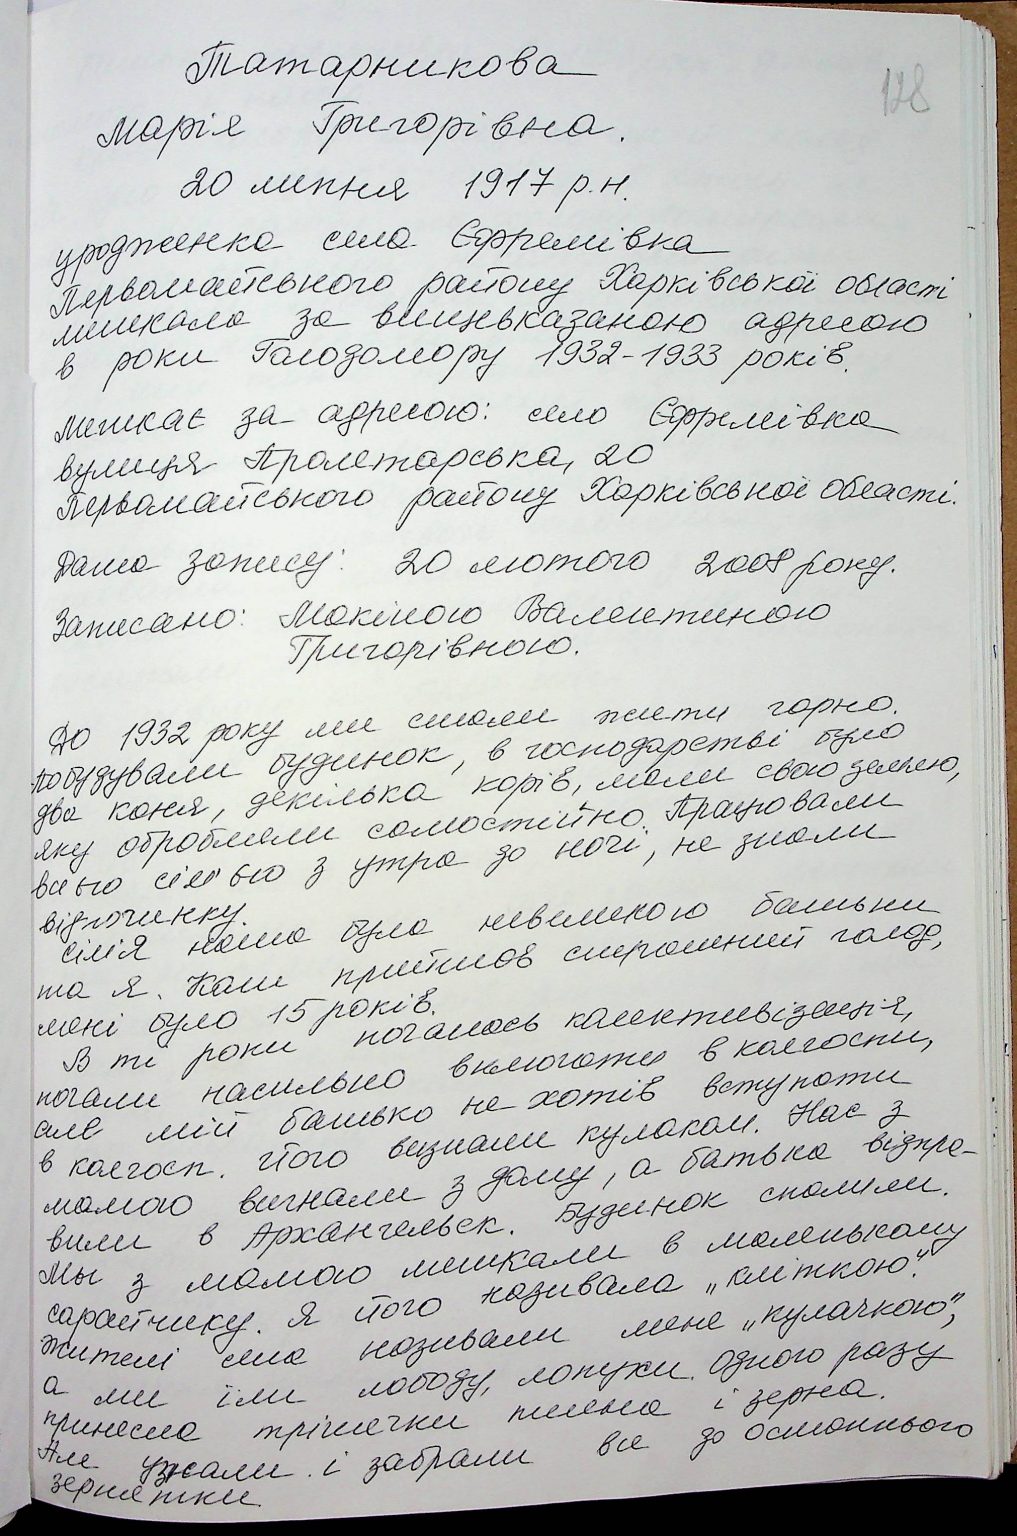 128
Татарникова
Марія Григорівна.
20 липня 1917 р.н.
уродженка села Єфремівка
Первомайського району Харківської області
мешкала за вищевказаною адресою
в роки Голодомору 1932-1933 років.
Мешкає за адресою: село Єфремівка
вулиця Пролетарська, 20
Первомайського району Харківської області.
Дата запису: 20 лютого 2008 року.
Записано: Мокіною Валентиною
Григорівною.
До 1932 року ми стали жити гарно.
Побудували будинок, в господарстві було
два коня, декілька корів, мали свою землю,
яку обробляли самостійно. Працювали
всією сім'єю з утра до ночі, не знали
відпочинку.
Сім'я наша була невеликою батьки
та я. Коли прийшов страшний голод,
мені було 15 років.
В ті роки почалась колективізація,
почали насильно включати в колгоспи,
але мій батько не хотів вступати
в колгосп. Його визнали кулаком. Нас з
мамою вигнали з дому, а батька відпра-
вили в Архангельск. Будинок спалили.
Мы з мамою мешкали в маленькому
сарайчику. Я його називала „кліткою".
Жителі села називали мене „кулачкою",
а ми їли лободу, лопухи. Одного разу
принесла трішечки пшена і зерна.
Але узнали і забрали все до останнього
зернятки.